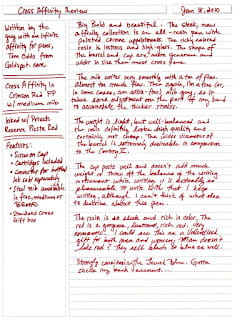 Cross Affinity Review
Jan 18, 2010
Written by the
guy with an infinite
affinity for pens,
Tom Oddo from
Goldspot.com
Cross Affinity in
Crimson Red FP
w/ medium nib
Inked w/ Private
Reserve Fiesta Red
Features:
• Screw on Cap
• Cartridges included
• Converter for bottled
ink sold separately
• Steel nib available
in fine, medium or
• Standard Cross
Gift box
Big Bold and Beautiful. The sleek, new
affinity collection is an all-resin pen with
polished chrome appointments. The richly colored
resin is lustrous and high-gloss. The shape of
the barrel and cap are more generous and
wider in size than most cross pens.
The nib writes very smoothly with a ton of flow.
Almost too much flow. Then again, I'm a fine (or,
in some cases, an extra-fine) nib guy, so it
takes some adjustment on the part of my hand
to accomodate the thicker strokes.
The weight is light, but well-balanced and
the nib definitely looks high quality and
certainly not cheap. The wider diameter of
the barrel is extremely desirable in comparison
to the Century II.
The cap posts well and doesn't add much
weight or throw off the balance of the writing
instrument while writing. It is actually so
pleasurable to write with that I keep
writing, although I can't think of what else
to describe about this pen.
The resin is so sleek and rich in color. The
red is a gorgeous, luminous, rich red. Very
romantic! I could see this as a Valentine's
gift for both men and women. Man doesn't
like red? They sell black or blue as well.
Strongly considering the Jewel Blue. Gotta
check my bank account....